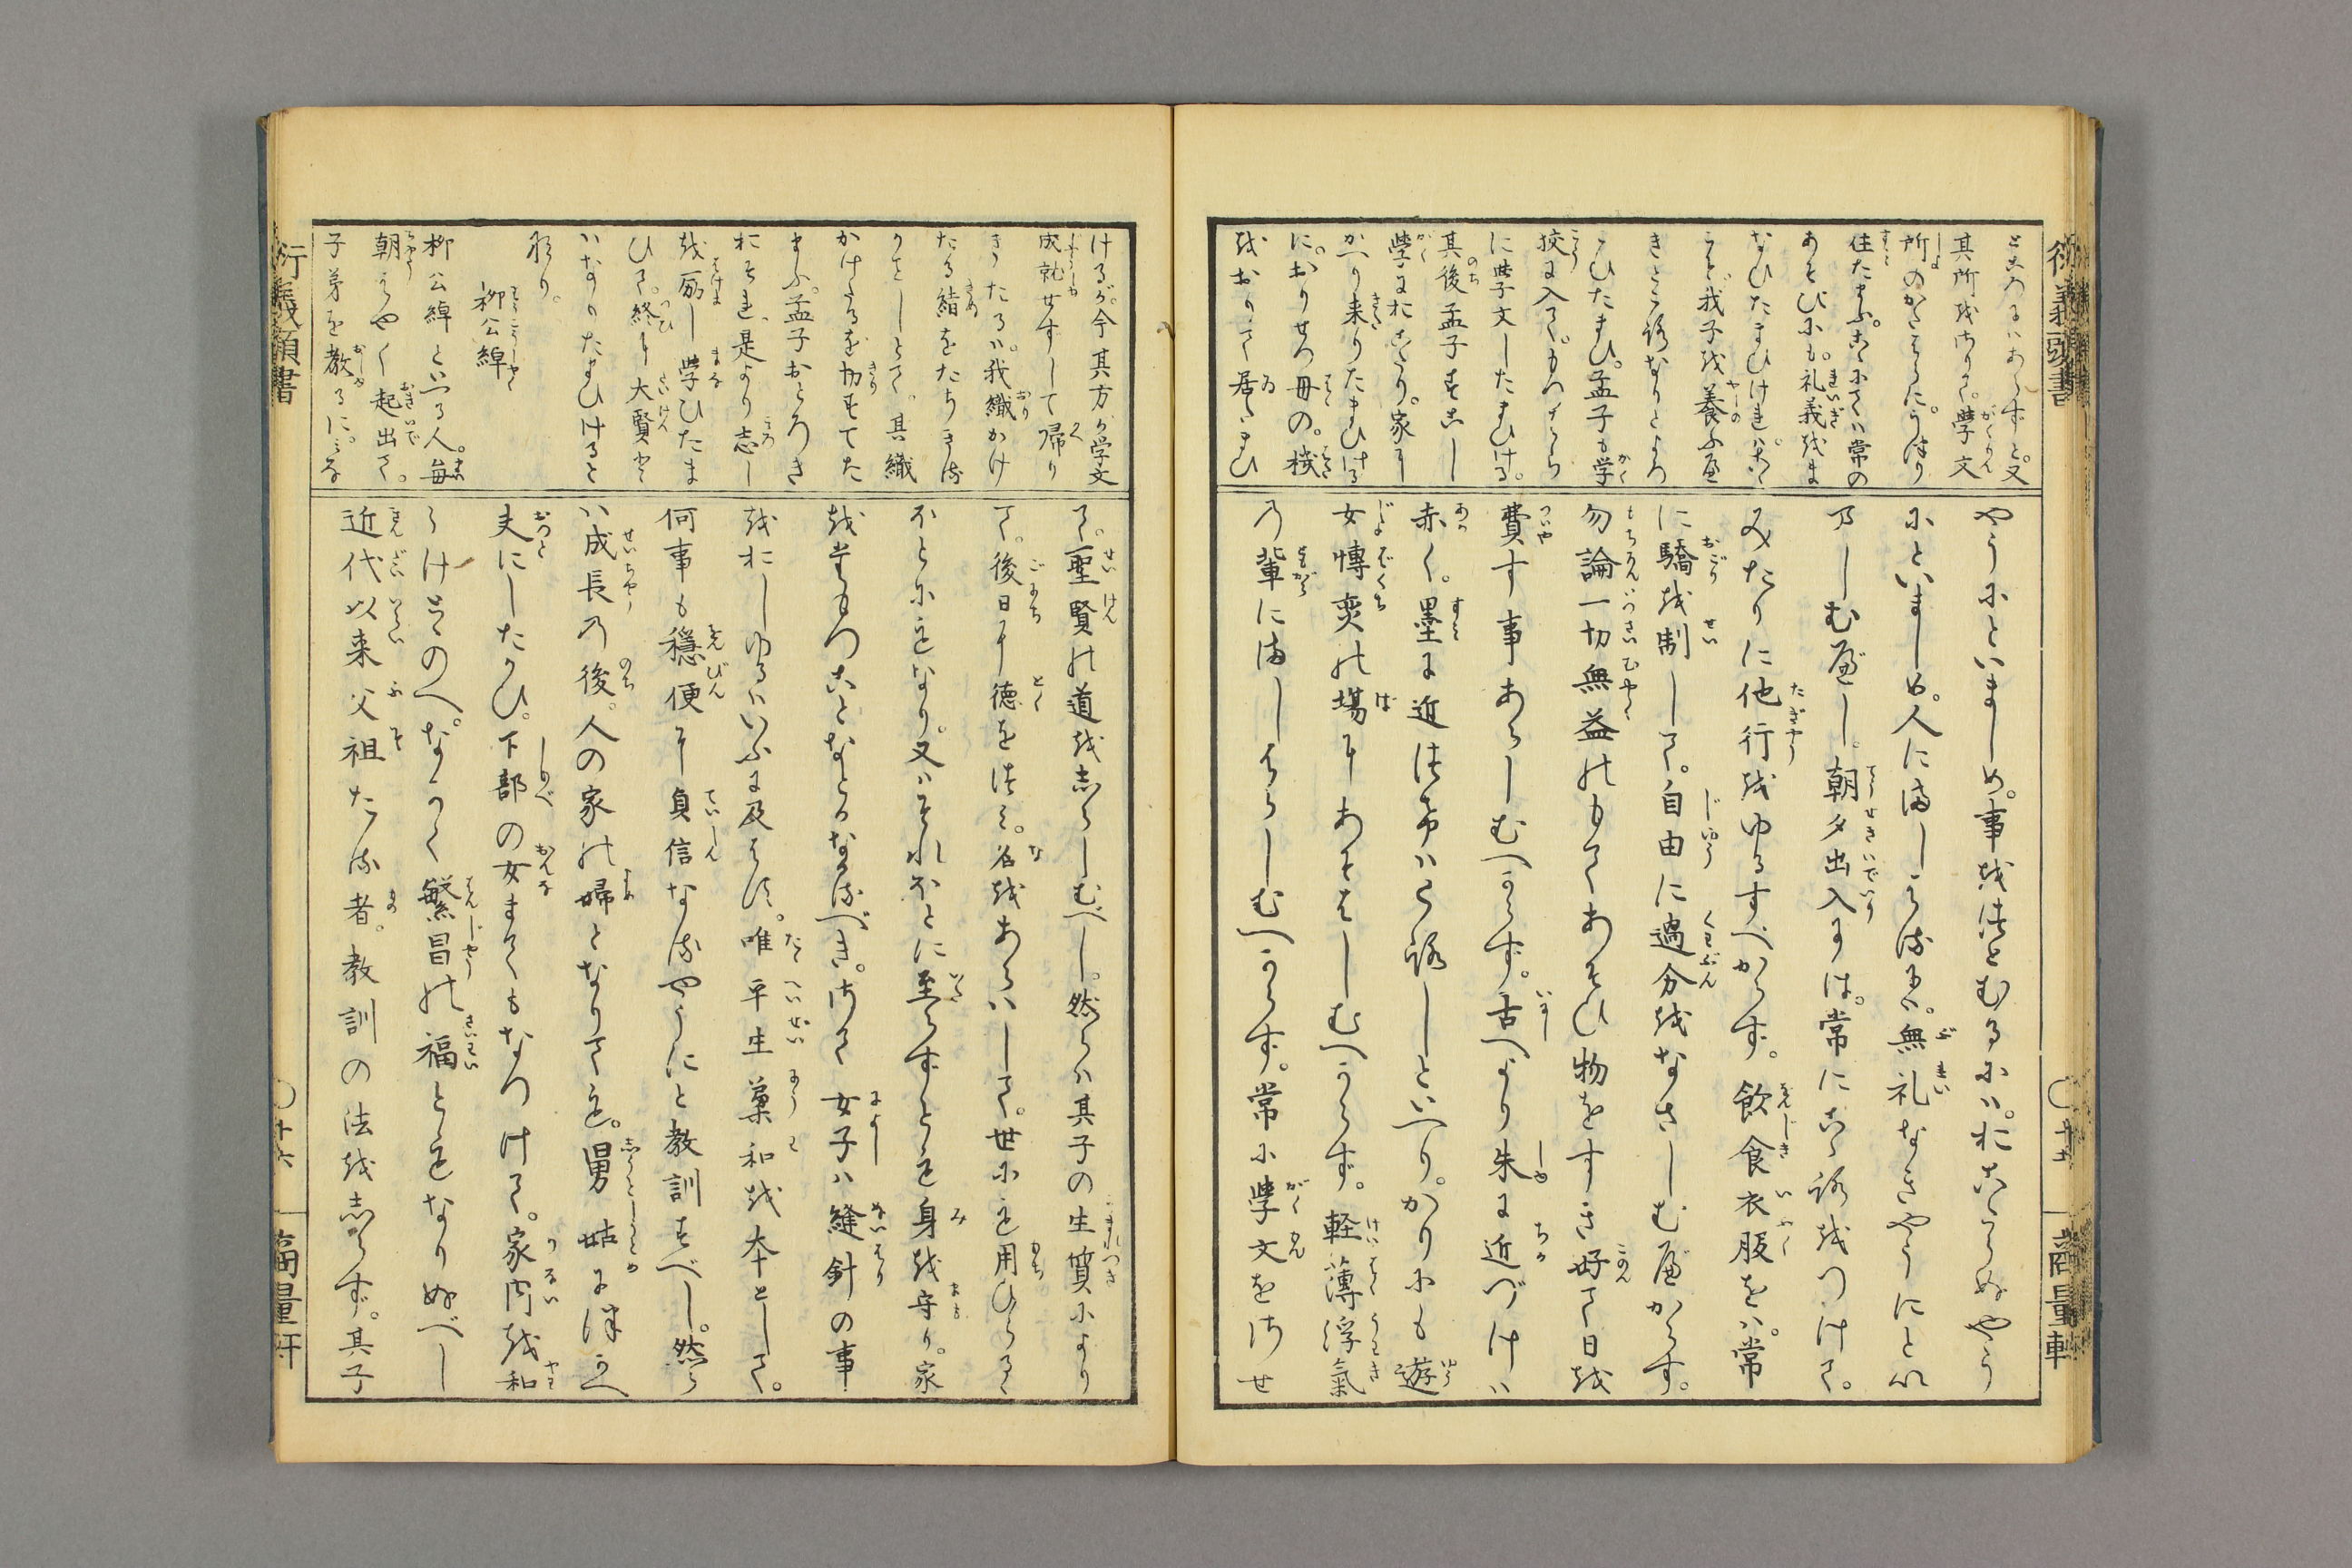 ところにハあらずと。又
其所をさりて。学文
所のかたはらに。うつり
住たまふ。こゝにてハ常の
あそびにも。礼義をま
なひたまひけれバ。こゝ
こそ我子を養ふべ
きところなりとよろ
こひたまひ。孟子も学
校に入て。もつはら
に学文したまひける。
其後孟子すこし
学におこたり。家に
かへり来りたまひける
に。おりせつ母の。機
をおりて居たまひ
やうにといましめ。事をつとむるにハ。おこたらぬやう
にといましめ。人にましハるにハ。無礼なきやうにとい
ましむべし。朝夕出入には。常にこゝろをつけて。
みたりに他行をゆるすべからず。飲食衣服をハ。常
に驕を制して。自由に過分をなさしむべからす。
勿論一切無益のもてあそひ物をすき好て日を
費す事あらしむへからず。古へより朱に近づけハ
赤く。墨に近はけハくろしといへり。かりにも遊
女博奕の場にあそはしむへからず。軽薄浮氣
の輩にましはらしむへからず。常に学文をさせ
けるが。今其方が学文
成就せすして帰り
きたるハ。我織かけ
たる絹をたちきる
りとしとて。其織
かけたるを切すてた
まふ。孟子おとろき
おそれ。是より志し
を励し学ひたま
ひて。終に大賢と
ハなりたまひけると
なり。
柳公綽
柳公綽といへる人。毎
朝はやく起出て。
子弟を教るに。みな
て。聖賢の道をしらしむべし。然らハ其子の生質により
て。後日に徳をつミ。名をあらハして。世にも用ひらるゝ
ほとにもなり。又ハそれほとに至らすとも身を守り。家
をたもつことなとかなるべき。さて女子ハ縫針の事
をおしゆるハいふに及はす。唯平生葉和を本として。
何事も穏便に貞信なるやうにと教訓すべし。然ら
ハ成長の後。人の家の婦となりても。舅姑につかへ
夫にしたかひ。下部の女まてもなつけて。家内を和
らけとゝのへ。なかく繁昌の福ともなりぬべし
近代以来父祖たる者。教訓の法をしらず。其子
衍義頭書
○十五
商量軒
衍義頭書
○十六
商量軒